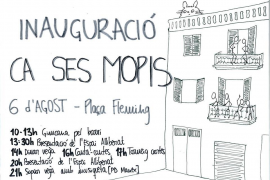 INAUGURACIÓ
CA SES MOPIS
6 d'AGOST - Plaça Fleming
10-13h Gimcana pel barri
13-30h Presentació de l'Espai Alliberat
14h Dinar vegà 16h Conta-contes 17h Torneig cartes
20h Presentació de l'Espai Alliberat
21h Sopar vegà amb musiqueta [PD Mauter]